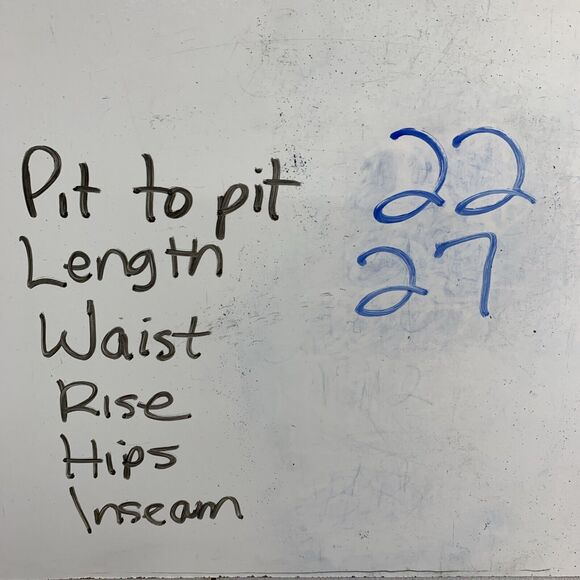 Pit to pit 22
Length 27
Waist
Rise
Hips
Inseam